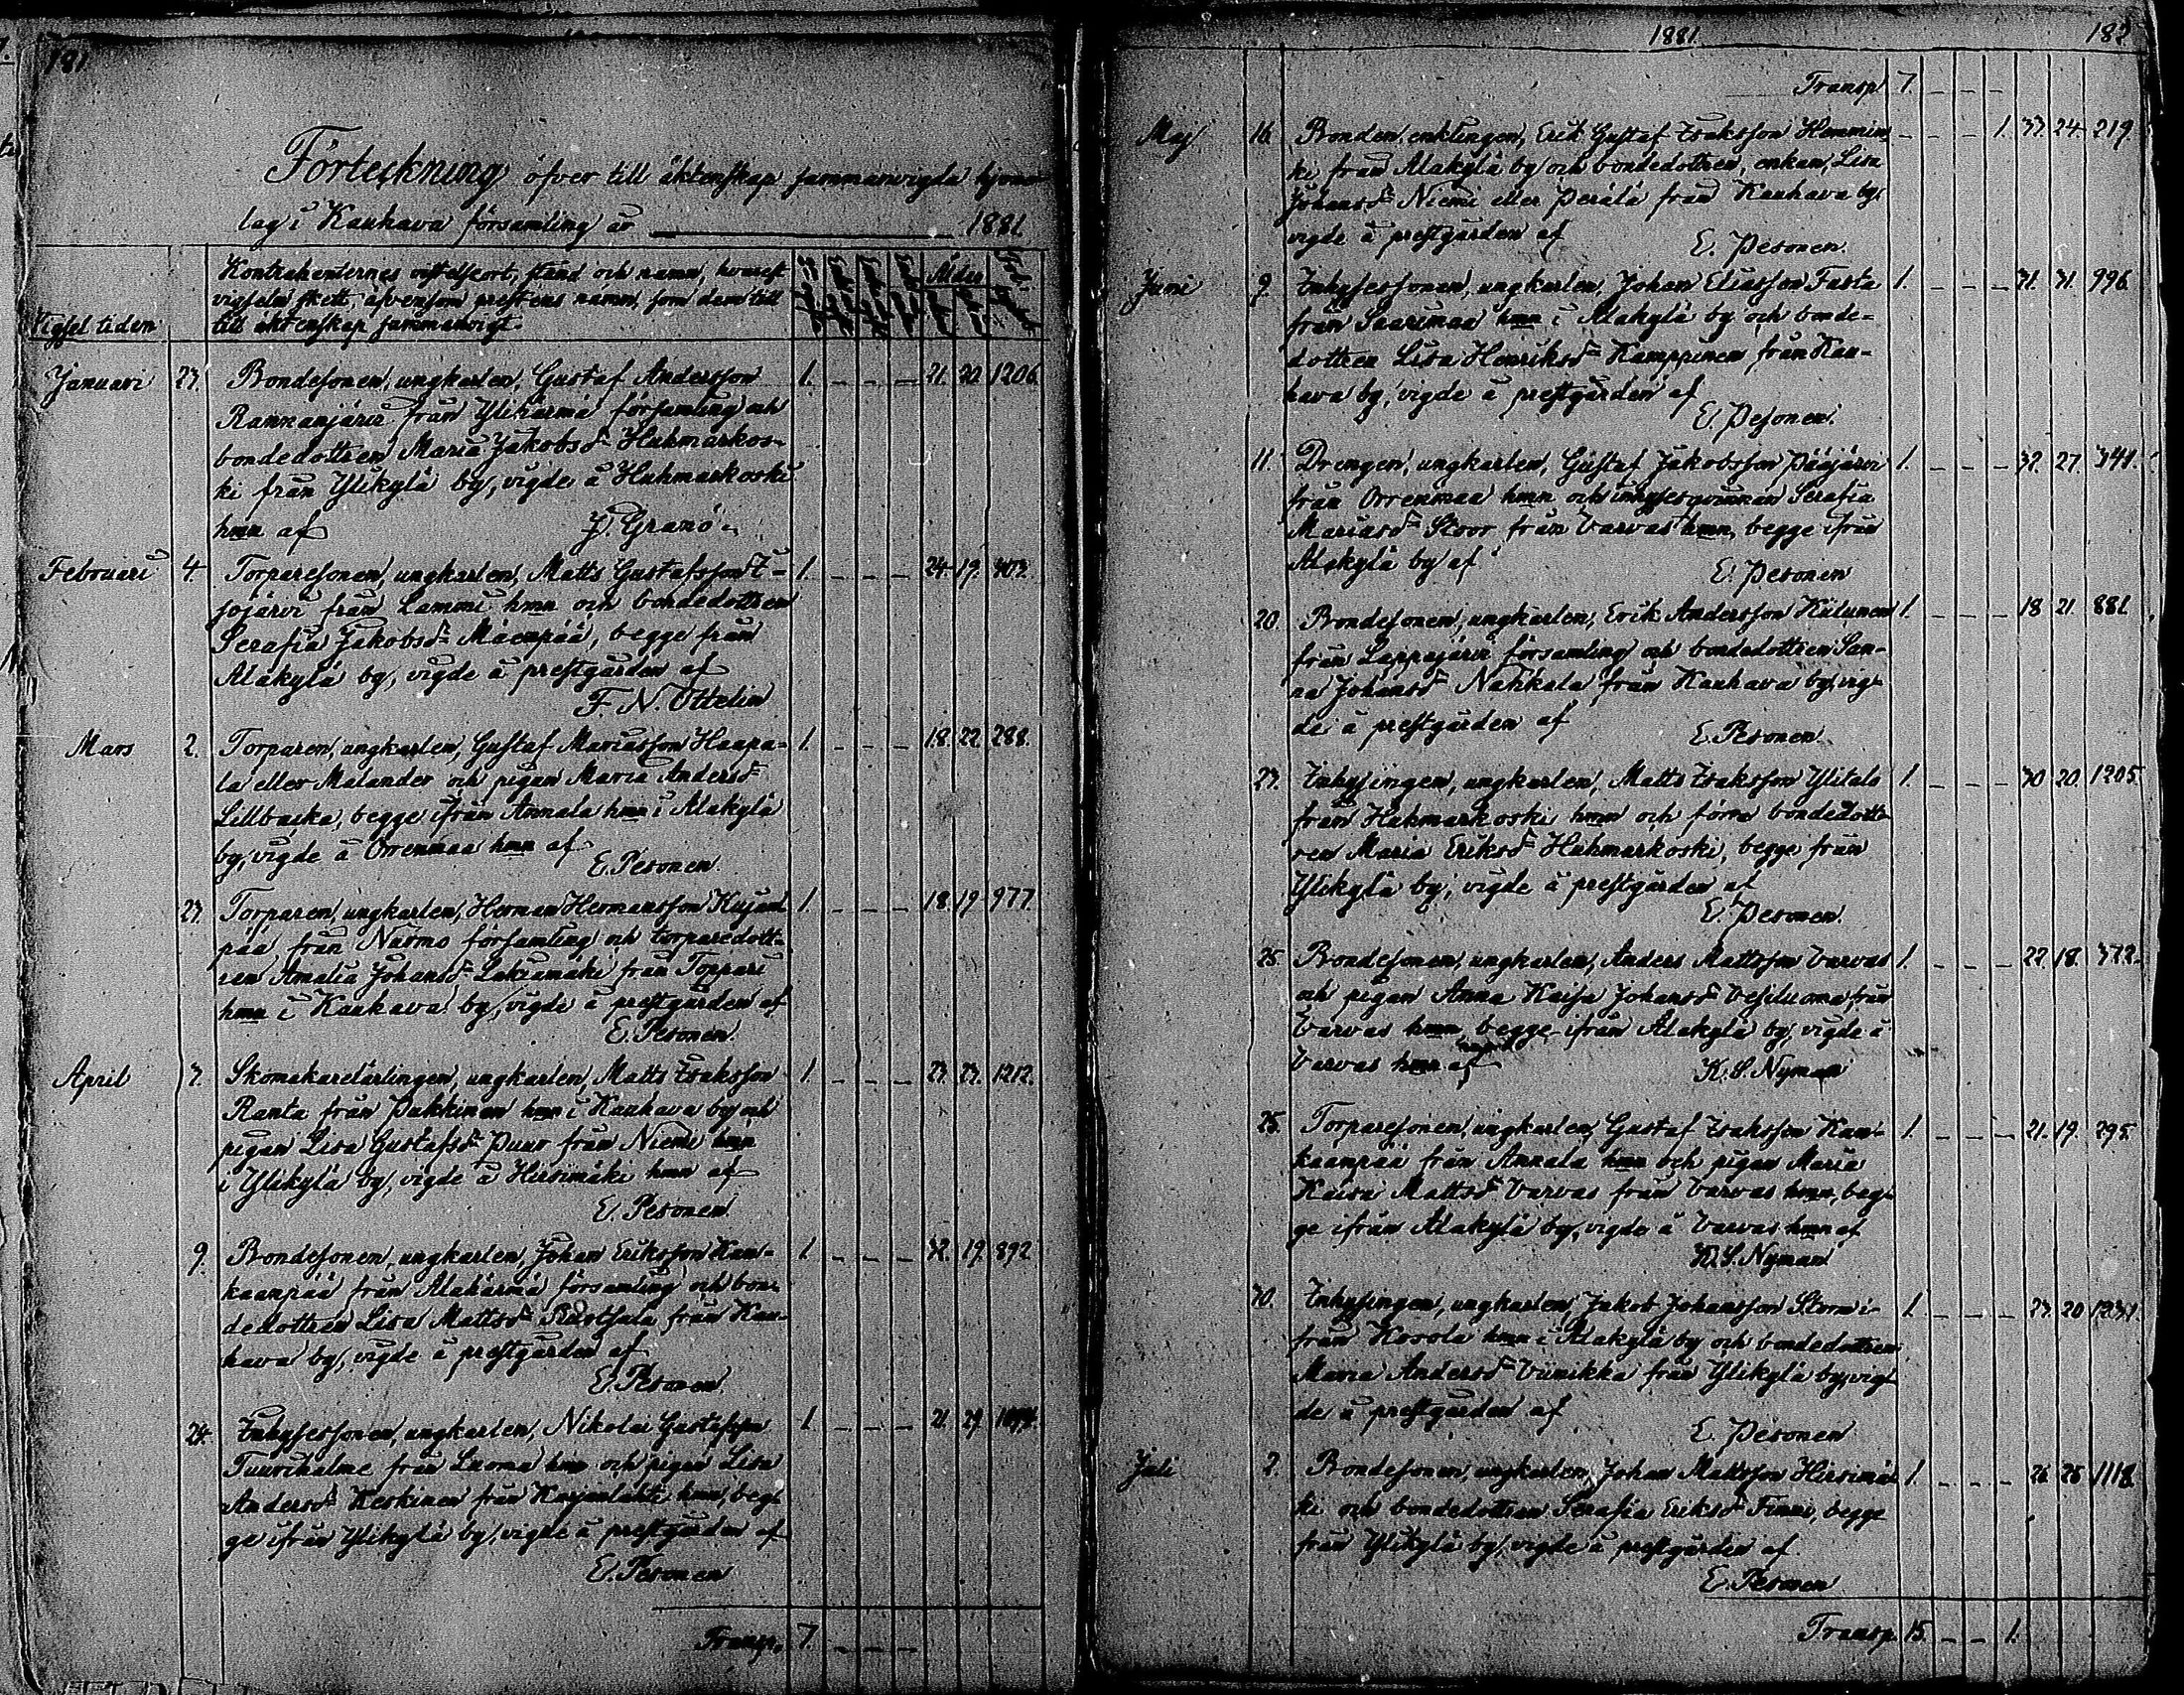 181
Förteckning öfver till äktenskap sammanvigda hjone-
lag i Kauhava församling år 1881
Vigsel tiden
Kontrahenternes vistelseort, stånd och namn, hvarest
vigseln skett, äfvensom prestens namn, som dem till
till äktenskap sammanvigt.
Ålder
Januari 23. Bondesonen, ungkarlen, Gustaf Andersson 1. _ _ _ 21. 20. 1206.
från Ylihärmä församling och
bondedottren Maria Jakobsd:r Huhmarkos-
ki från Ylikylä by, vigde å Huhmarkoski
hmn af J. Granö.
Februari 4. Torparesonen, ungkarlen, Matts Gustafsson I- 1. _ _ _ 24. 19.
sojärvi från Lammi hmn och bondedottren
Serafia Jakobsd:r Mäenpää, begge från
Alakylä by, vigde å prestgården af
F. N. Ottelin
Mars 2. Torparen, ungkarlen, Gustaf Mariasson Haapa- 1. _ _ _ 18. 22. 288.
la eller Malander och pigan Maria Andersd:r
Lillbacka, begge ifrån Annala hmn i Alakylä
by, vigde å Orrenmaa hmn af
E. Pesonen.
23. Torparen, ungkarlen, Herman Hermansson Kujan 1. _ _ _ 18. 19. 977.
pää från Nurmo församling och torparedott-
ren Amalia Johansd:r Lakiamäki från Toppari
hmn i Kauhava by, vigde å prestgården af
E. Pesonen.
April 3. Skomakarelärlingen, ungkarlen, Matts Isaksson 1. _ _ _ 23. 23. 1212.
Ranta från Pukkinen hmn i Kauhava by och
pigan Lisa Gustafsd:r Puur från Niemi hmn
i Ylikylä by, vigde å Hirsimäki hmn af
E. Pesonen
9. Bondesonen, ungkarlen, Johan Eriksson Kan- 1. _ _ _ 32. 19. 892
kaanpää från Alahärmä församling och bon-
dedottren Lisa Mattsd:r från Kau-
hava by, vigde å prestgården af
E. Pesonen.
24. Inhysessonen, ungkarlen, Nikolai Gustafsson 1. _ _ _ 21. 29.
Tuurihalme från Luoma hmn och pigan Lisa
Andersd:r Keskinen från Karjanlahti hmn, beg-
ge ifrån Ylikylä by, vigde å prestgården af
E. Pesonen
Transp. 7. _ _ _
1881 182
Transp 7. _ _ _
Maj 16. Bonden, enklingen, Erik Gustaf Isaksson Hemmin- _ _ _ 1. 33. 24. 219.
ki från Alakylä by och bondedottren, enkan, Lisa
Johansd:r Niemi eller Perälä från Kauhava by,
vigde å prestgården af E. Pesonen.
Juni 9. Inhysessonen, ungkarlen, Johan Eliasson Fasta 1. _ _ _ 31. 31. 996.
från Saarimaa hmn i Alakylä by och bonde-
dottren Lisa Henriksd:r Kamppinen från Kau-
hava by, vigde å prestgården af
E. Pesonen.
11. Drengen, ungkarlen, Gustaf Jakobsson Pääjärvi 1. _ _ _ 32. 27. 341.
från Orrenmaa hmn och inhysesqvinnan Serafia
Mariasd:r Stoor från Varvas hmn, begge ifrån
Alakylä by af E. Pesonen
20. Bondesonen, ungkarlen, Erik Andersson Kiilunen 1. _ _ _ 18 21. 881.
från Lappajärvi församling och bondedottren San-
na Johansd:r Nahkala från Kauhava by, vig-
de å prestgården af E. Pesonen.
23. Inhysingen, ungkarlen, Matts Isaksson Ylitalo 1. _ _ _ 30 20. 1205.
från Huhmarkoski hmn och förra bondedott-
ren Maria Eriksd:r Huhmarkoski, begge från
Ylikylä by, vigde å prestgården af
E. Pesonen.
25. Bondesonen, ungkarlen, Anders Mattsson Varvas 1. _ _ _ 22. 18. 372.
och pigan Anna Kaisa Johansd:r Vesiluoma från
Varvas hmn, begge ifrån Alakylä by, vigde å
Varvas hmn af K. S. Nyman
25. Torparesonen, ungkarlen, Gustaf Isaksson Kan- 1. _ _ _ 21. 19. 295.
kaanpää från Annala hmn och pigan Maria
Kaisa Mattsd:r Varvas från Varvas hmn, beg-
ge ifrån Alakylä by, vigde å Varvas hmn af
K. S. Nyman
30. Inhysingen, ungkarlen, Jakob Johansson Storm i- 1. _ _ _ 23. 20
från Kosola hmn i Alakylä by och bondedottren
Maria Andersd:r Viinikka från Ylikylä by, vig-
de å prestgården af
E. Pesonen
Juli 2. Bondesonen, ungkarlen, Johan Mattsson Hirsimä- 1. _ _ _ 26 25 1118.
ki och bondedottren Serafia Eriksd:r Finni, begge
från Ylikylä by, vigde å prestgården af
E. Pesonen
Transp 15. _ _ 1.